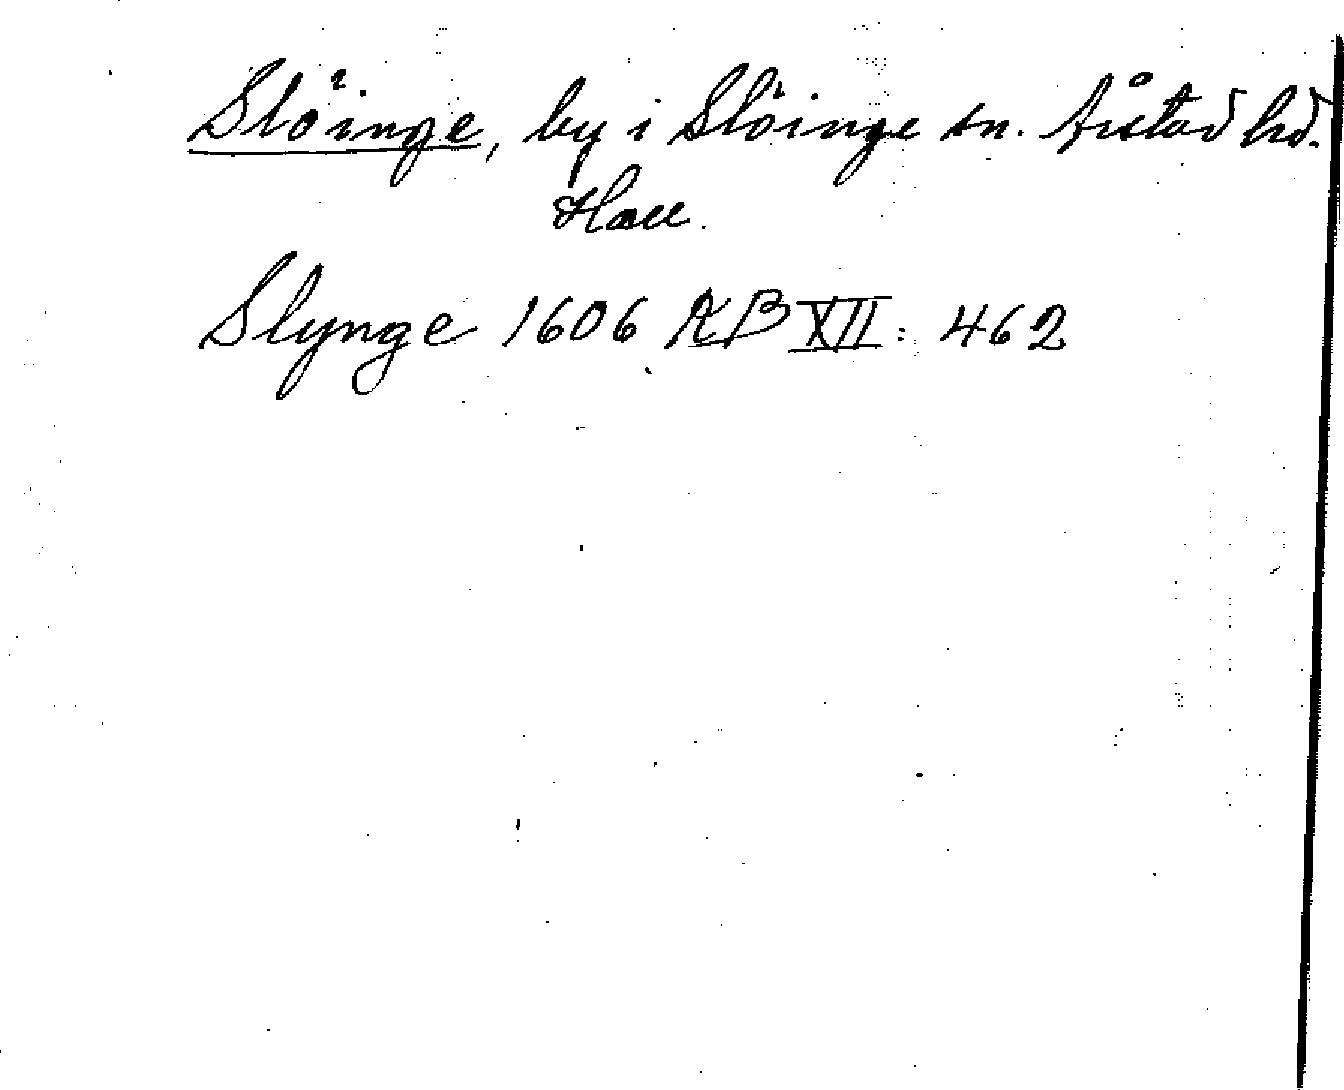 Slöinge, by i Slöinge sn. Årstad hd.
Hall.
Slynge 1606 KB XII: 462